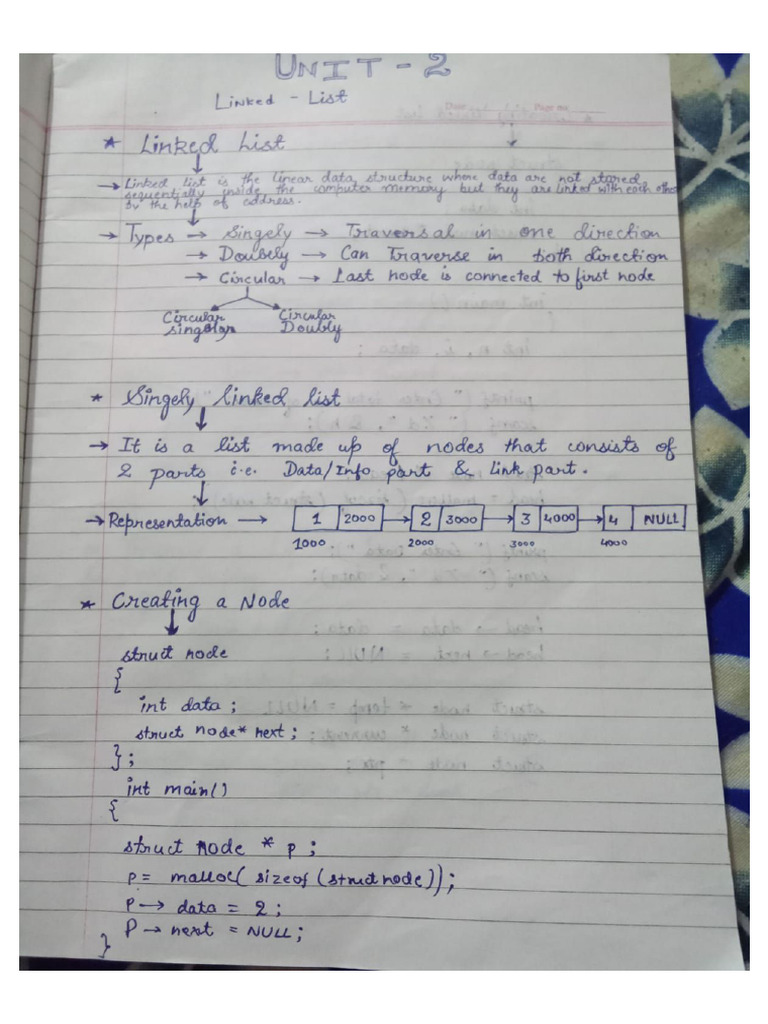 UNIT - 2
Linked - List
* Linked List
→ Linked list is the linear data structure where data are not stored
sequentially inside the computer memory but they are linked with each other
by the help of address.
→ Types → Singely → Traversal in one direction
→ Doubely → Can Traverse in both direction
→ Circular → Last node is connected to first node
Circular Circular
Doubly
* Singely linked list
→ It is a list made up of nodes that consists of
2 parts i.e. Data/Info part & Link part.
→ Representation → 1 2000 → 2 3000 → 3 4000 → 4 NULL
1000 2000 3000 4000
* Creating a Node
struct node
{
int data ;
struct node* next ;
};
int main()
{
struct node * p ;
p = malloc( sizeof (struct node));
P → data = 2 ;
P → next = NULL;
}